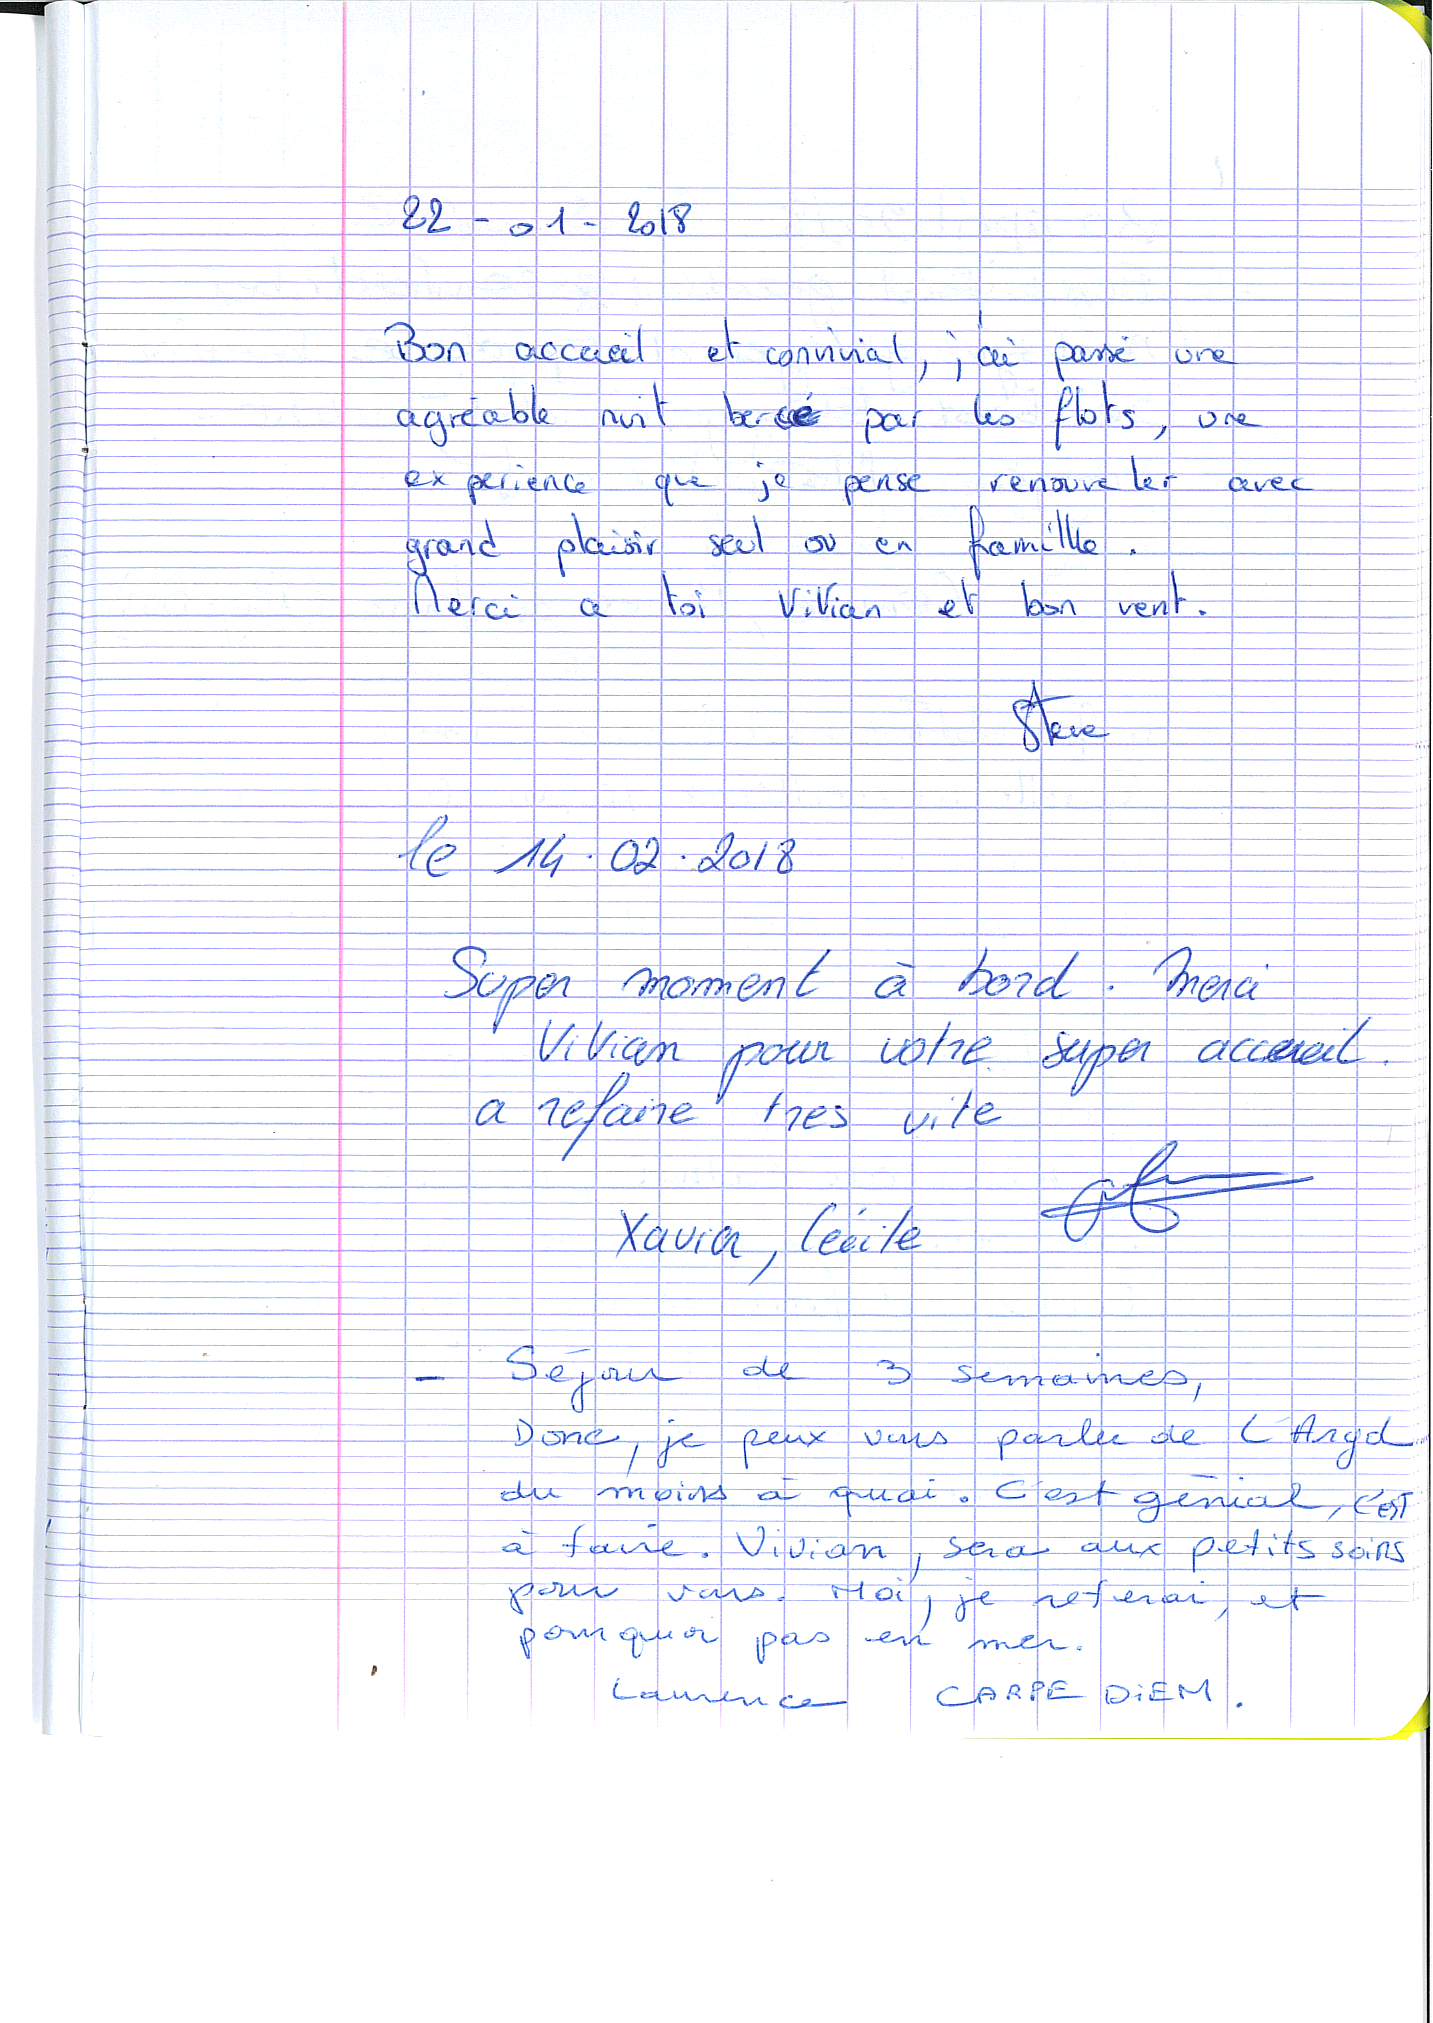 22 - 01 - 2018
Bon accueil et convivial, j'ai passé une
agréable nuit bercé par les flots, une
experience que je pense renouveler avec
grand plaisir seul ou en famille.
Merci a toi Vivian et bon vent.
Steve
le 14.02.2018
Super moment à bord. Merci
Vivian pour votre super accueil.
a refaire tres vite
Xavier, Cécile
- Séjour de 3 semaines,
Donc, je peux vous parler de L'Argd
du moins à quai. C'est génial, c'est
à faire. Vivian, sera aux petits soins
pour vous. Moi, je referai, et
pourquoi pas en mer.
Laurence CARPE DIEM.